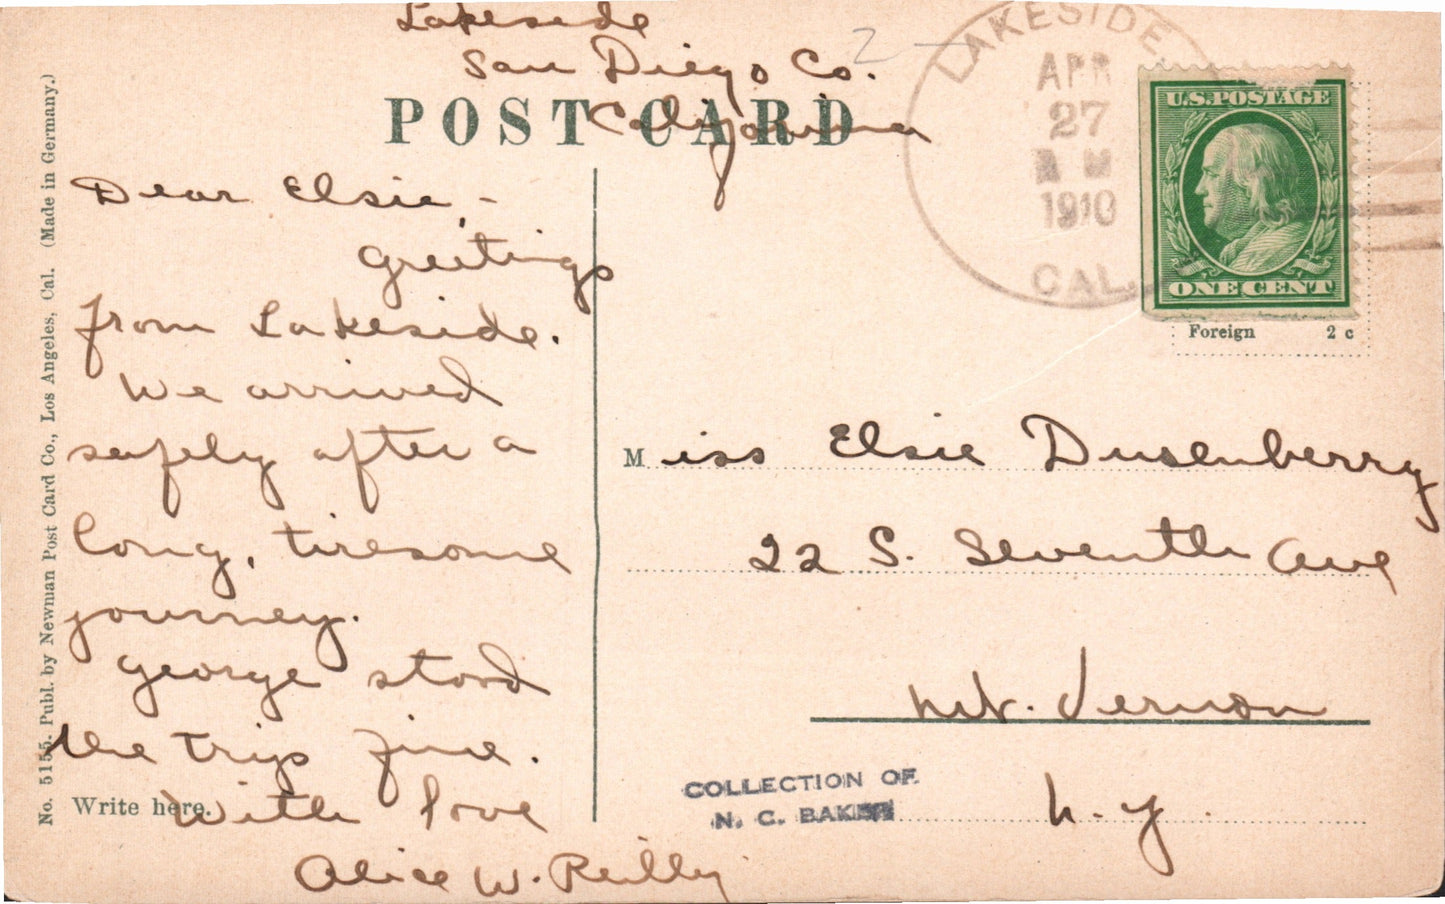 Lakeside
San Diego Co.
California
POST CARD
LAKESIDE,
APR
27
M
1910
CAL.
U.S. POSTAGE
ONE CENT
Foreign 2 c
No. 5155. Publ. by Newman Post Card Co., Los Angeles, Cal. (Made in Germany.)
Dear Elsie,-
Greetings
from Lakeside.
We arrived
safely after a
long, tiresome
journey.
George stood
the trip fine.
Write here.
With love
Alice W. Reilly
Miss Elsie Dusenberry
22 S. Seventh Ave
Mt. Vernon
N.Y.
COLLECTION OF
N. C. BAKER
2 -